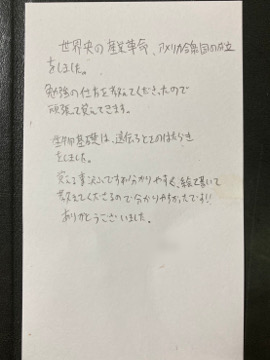 世界史の産業革命、アメリカ合衆国の成立
をしました。
勉強の仕方を教えてくださったので
頑張って覚えてきます。
生物基礎は、遺伝子とそのはたらき
をしました。
覚える事が
分かりやすく、絵で書いて
教えてくださるので分かりやすかったです!!
ありがとうございました。